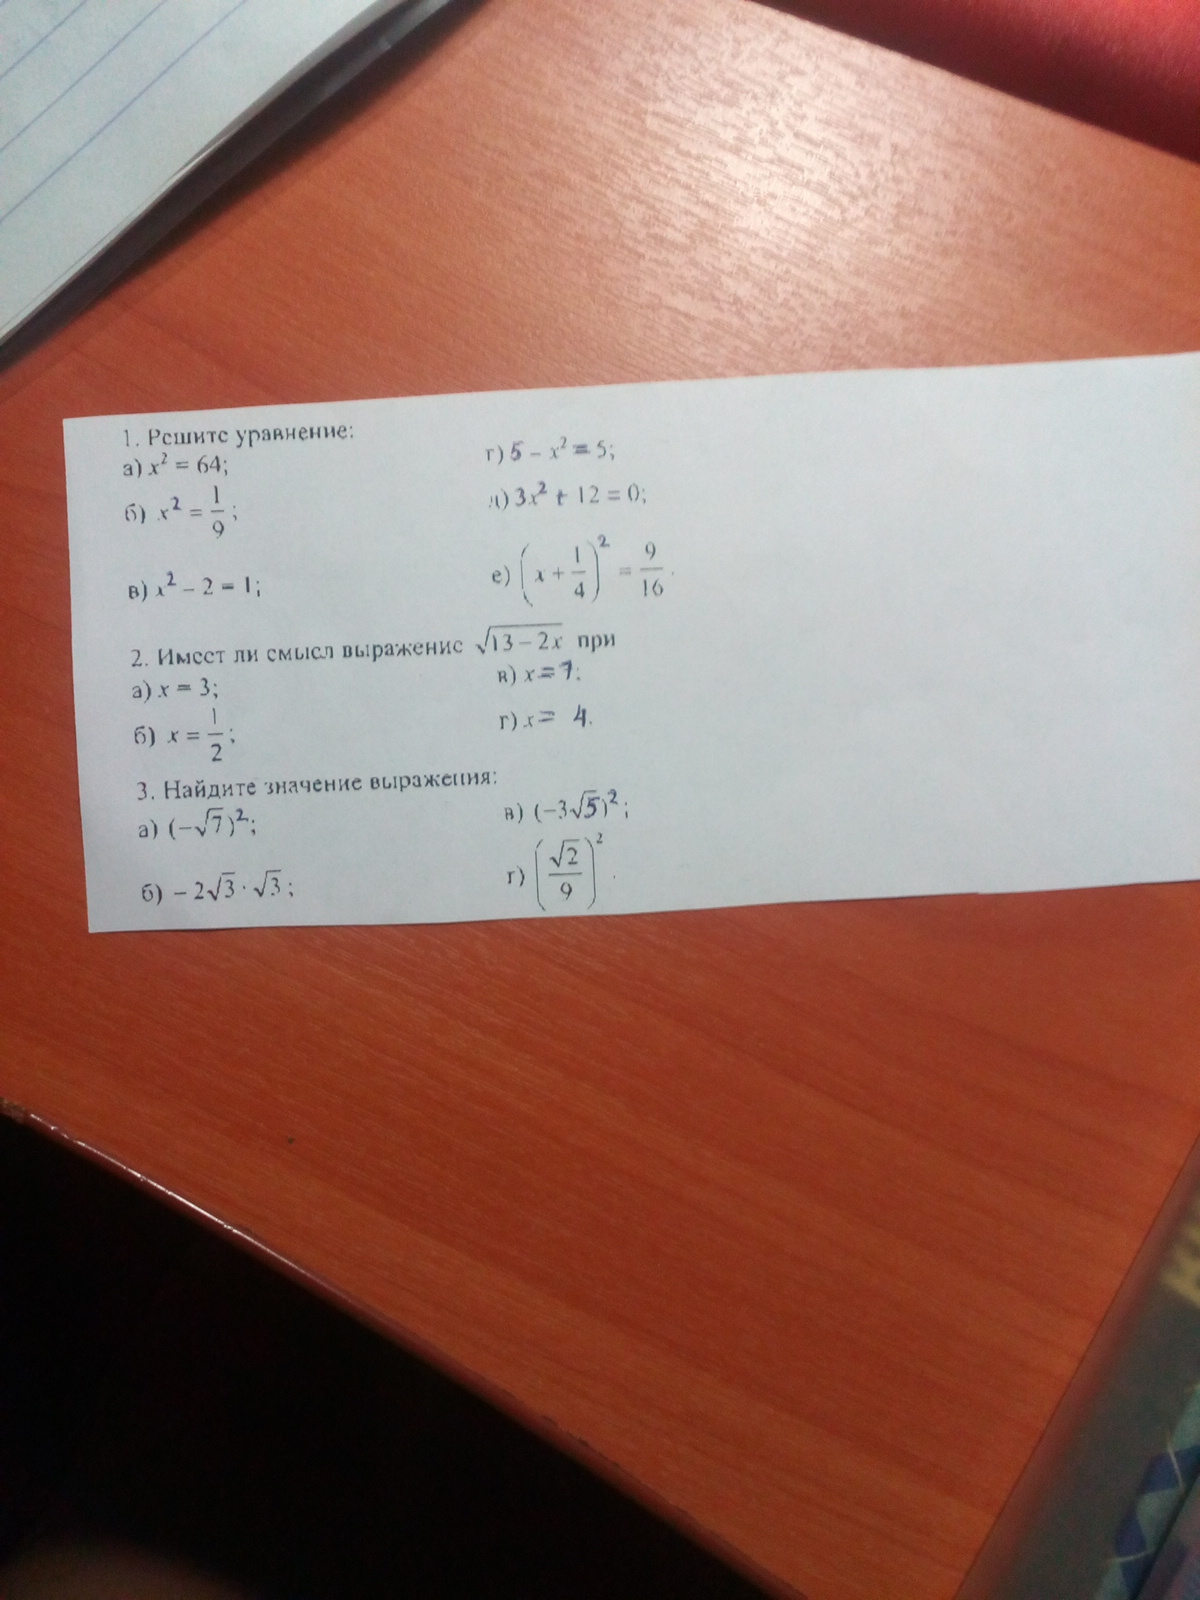 1. Решите уравнение:
а) x² = 64;
б) x² = 1/9;
в) x² − 2 = 1;
г) 5 − x² = 5;
д) 3x² + 12 = 0;
е) (x + 1/4)² = 9/16.
2. Имеет ли смысл выражение √(13 − 2x) при
а) x = 3;
б) x = 1/2;
в) x = 7;
г) x = 4.
3. Найдите значение выражения:
а) (−√7)²;
б) −2√3 · √3;
в) (−3√5)²;
г) (√2/9)².